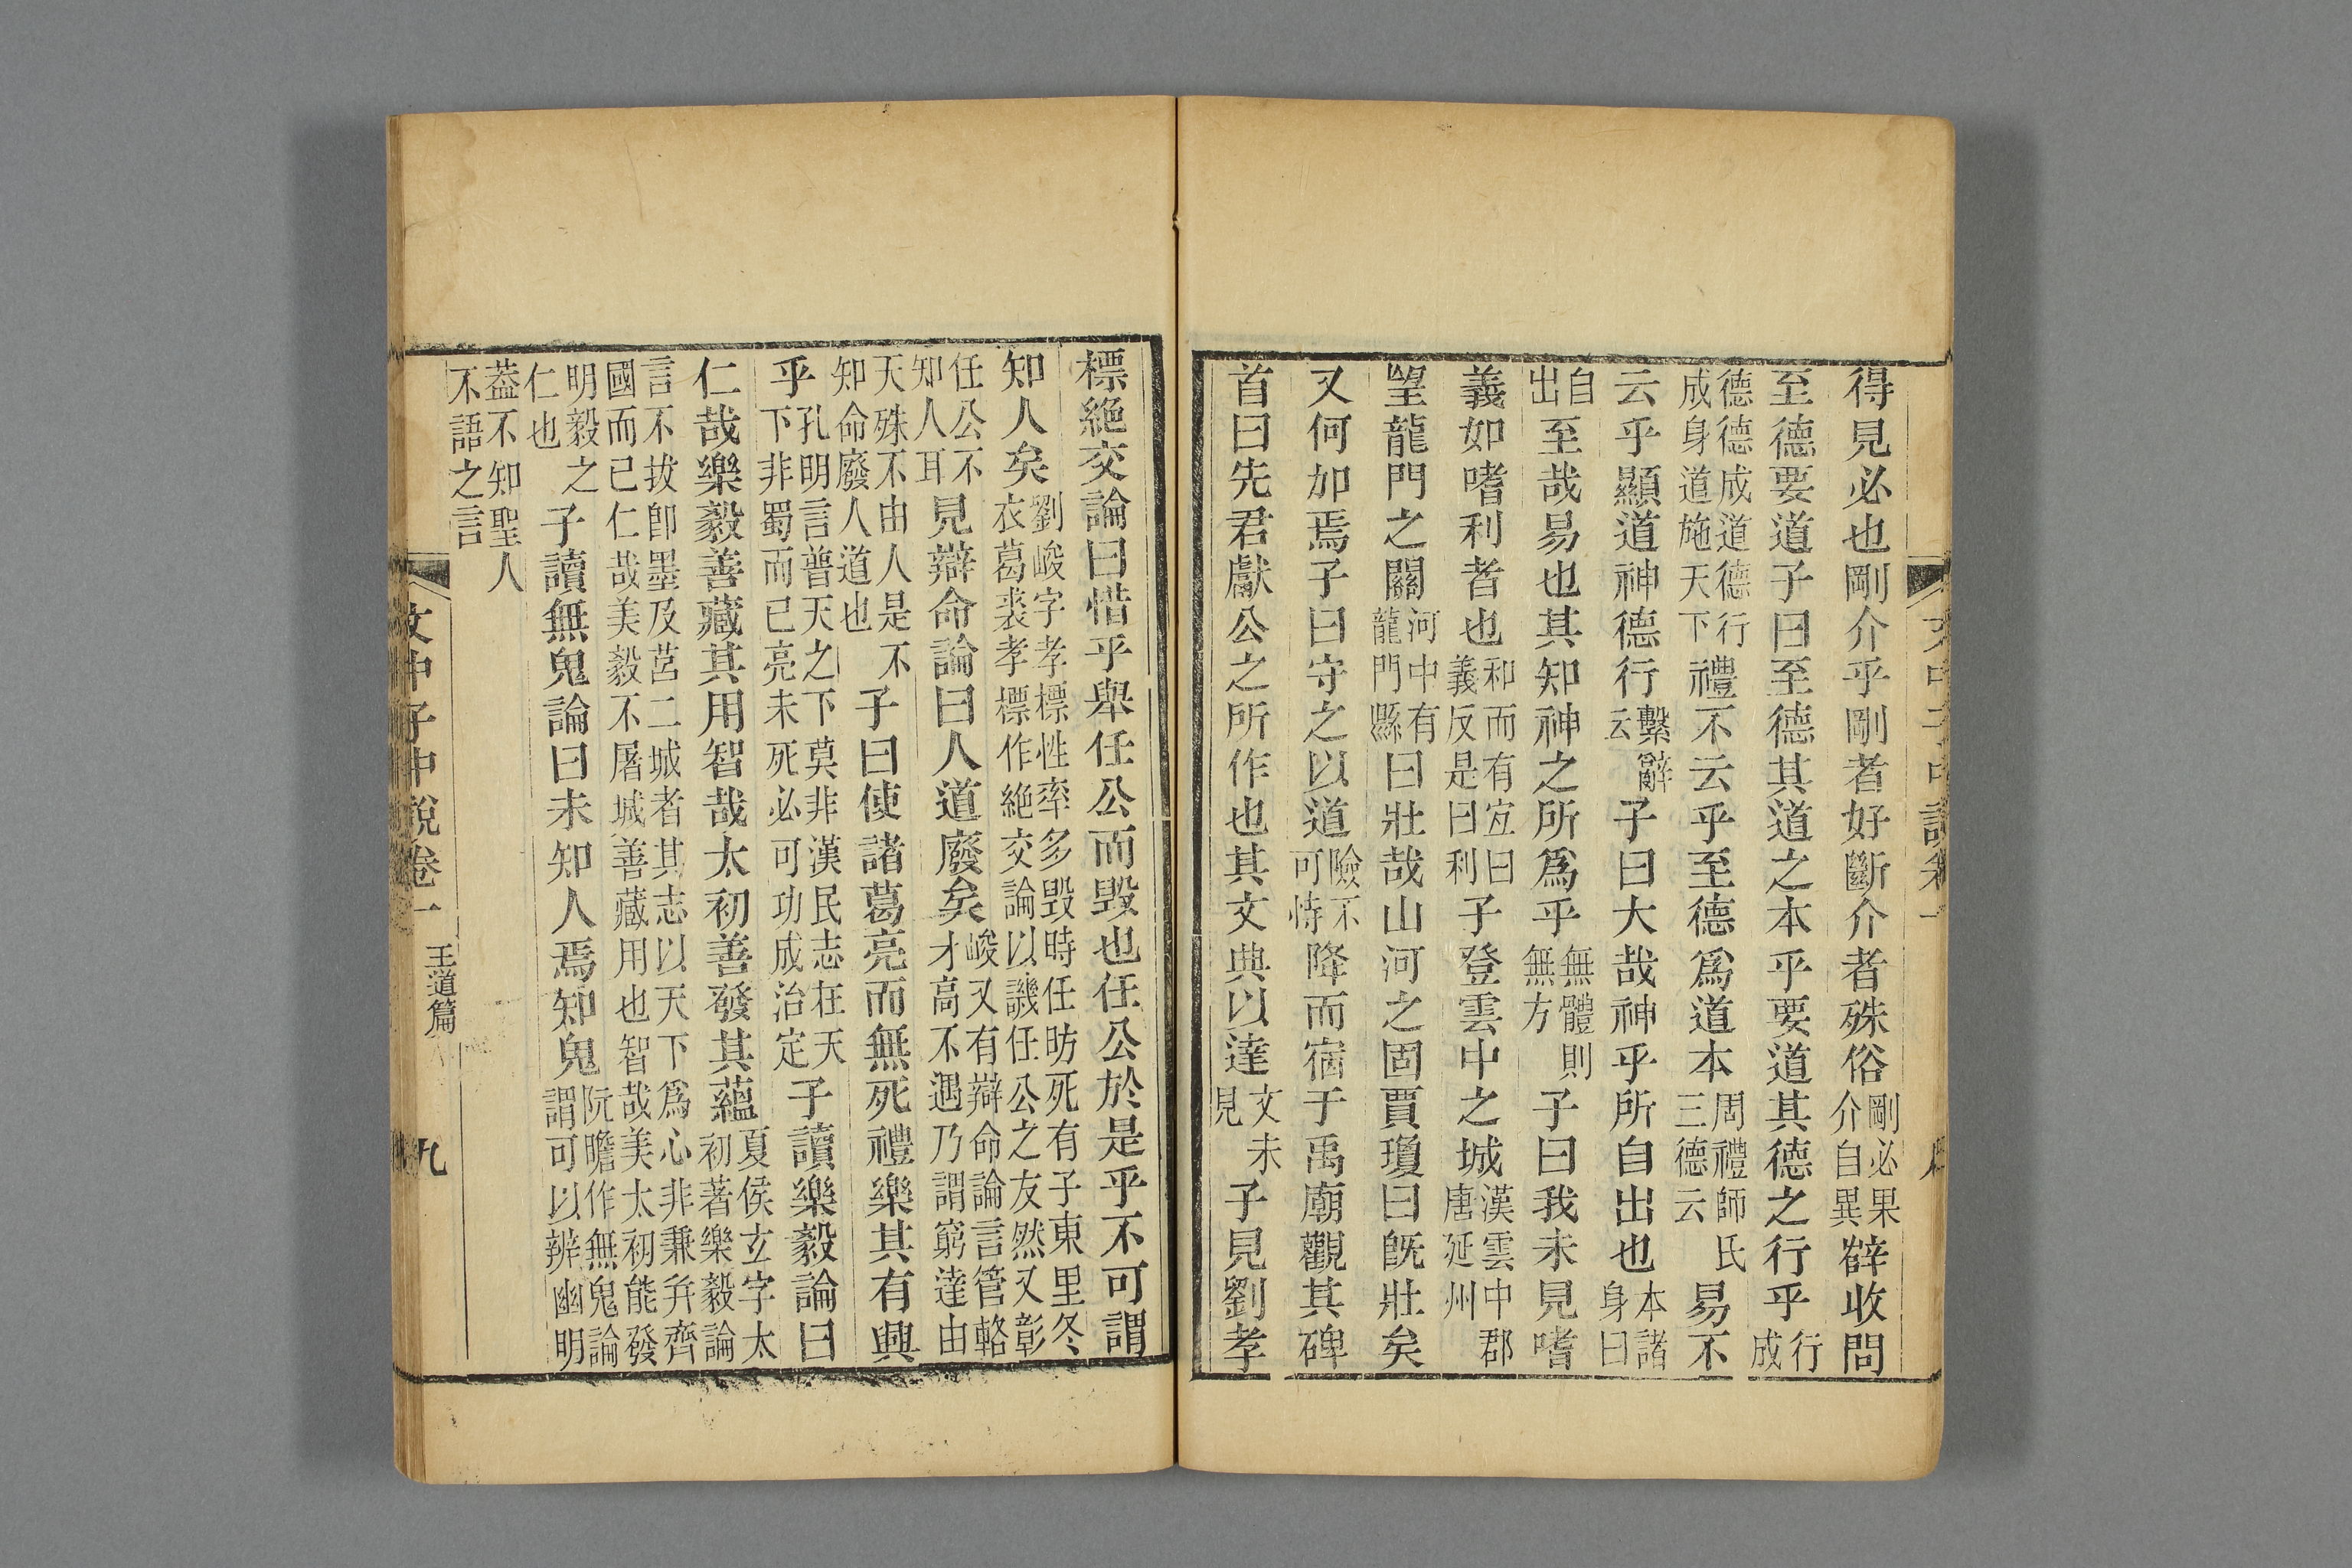 得見必也剛介乎剛者好斷介者殊俗剛必果介自異薛收問
至德要道子曰至德其道之本乎要道其德之行乎行成
德德成道德行成身道施天下禮不云乎至德爲道本周禮師氏三德云易不
云乎顯道神德行繫辭云子曰大哉神乎所自出也本諸身曰
自出至哉易也其知神之所爲乎無體則無方子曰我未見嗜
義如嗜利者也和而有宜曰義反是曰利子登雲中之城漢雲中郡唐延州
朢龍門之關河中有龍門縣曰壯哉山河之固賈瓊曰旣壯矣
又何加焉子曰守之以道險不可恃降而宿于禹廟觀其碑
首曰先君獻公之所作也其文典以達文未見子見劉孝
標絕交論曰惜乎舉任公而毀也任公於是乎不可謂
知人矣劉峻字孝標性率多毀時任昉死有子東里冬衣葛裘孝標作絕交論以譏任公之友然又彰
任公不知人耳見辯命論曰人道廢矣峻又有辯命論言管輅才高不遇乃謂窮達由
天殊不由人是不知命廢人道也子曰使諸葛亮而無死禮樂其有興
乎孔明言普天之下莫非漢民志在天下非蜀而已亮未死必可功成治定子讀樂毅論曰
仁哉樂毅善藏其用智哉太初善發其蘊夏侯玄字太初著樂毅論
言不拔卽墨及莒二城者其志以天下爲心非兼幷齊國而已仁哉美毅不屠城善藏用也智哉美太初能發
明毅之仁也子讀無鬼論曰未知人焉知鬼阮瞻作無鬼論謂可以辨幽明
葢不知聖人不語之言
文中子中說卷一 王道篇 九